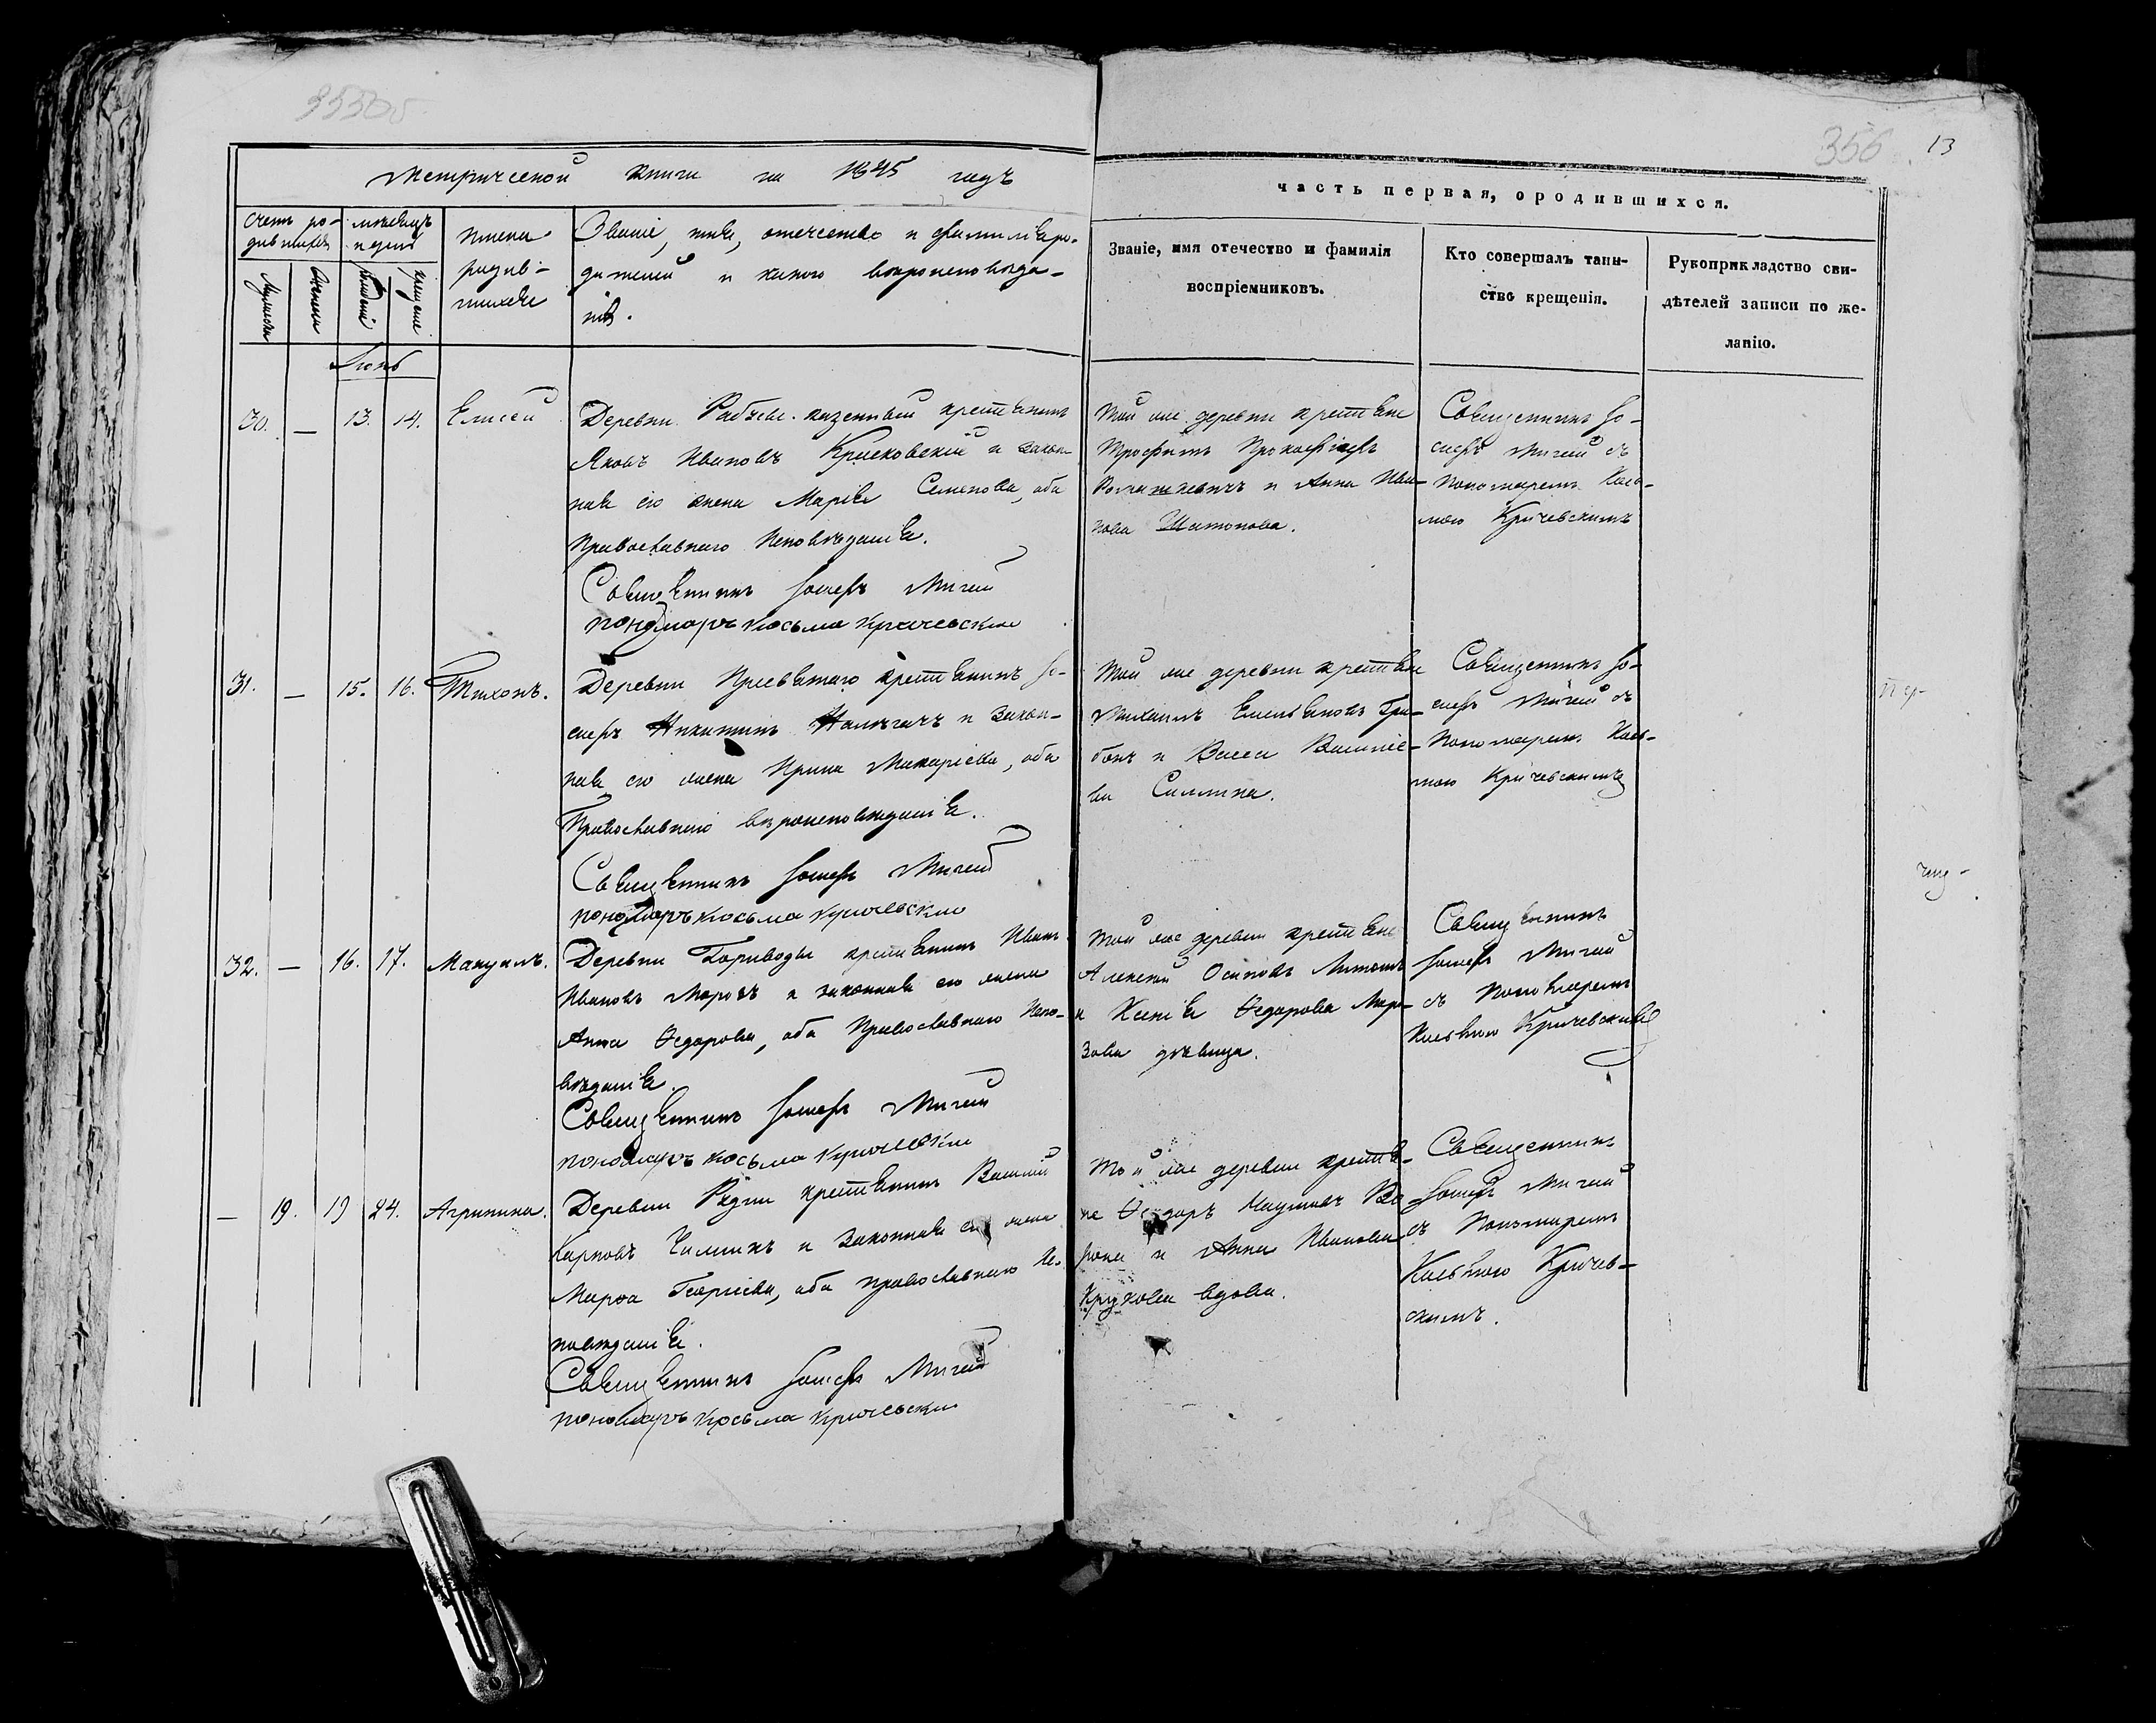 355об
356
13
Метрической книги на 1845 годъ
часть первая, ородившихся.
Счетъ ро-
дившихся
мѣсяцъ
и день
Имена
родив-
шихся
Званіе, имя, отчество и фамилія ро-
дителей и какого вѣроисповѣда-
нія.
Мужеска
Женска
рожденія
крещенія
Званіе, имя отечество и фамилія
воспріемниковъ.
Кто совершалъ таин-
ство крещенія.
Рукоприкладство сви-
дѣтелей записи по же-
ланію.
Іюнь
30. — 13. 14. Елисей
Деревни казенный крестьянинъ
Яковъ Ивановъ и закон-
ная его жена Марія Семенова, оба
Православнаго Исповѣданія.
Священникъ Іосифъ Мигай
пономарь Косьма Кричевскій
Той же деревни крестьяне
Трофимъ Прокофіевъ
и Анна Ива-
нова Шатонова.
Священникъ Іо-
сифъ Мигай съ
Пономаремъ Кось-
мою Кричевскимъ
31. — 15. 16. Тихонъ.
Деревни крестьянинъ Іо-
сифъ Никитинъ и закон-
ная его жена Ирина Макаріева, оба
Православнаго вѣроисповѣданія.
Священникъ Іосифъ Мигай
пономарь Косьма Кричевскій
Той же деревни крестьяне
Михаилъ Емельяновъ Гри-
бокъ и Васса Василіе-
ва
Священникъ Іо-
сифъ Мигай съ
Пономаремъ Кось-
мою Кричевскимъ
32. — 16. 17. Мануилъ.
Деревни крестьянинъ Иванъ
Ивановъ Морозъ и законная его жена
Анна Ѳедорова, оба Православнаго Испо-
вѣданія.
Священникъ Іосифъ Мигай
пономарь Косьма Кричевскій
Той же деревни крестьяне
Алексей Осиповъ
и Ксенія Ѳедорова Моро-
зова дѣвица.
Священникъ
Іосифъ Мигай
съ Пономаремъ
Косьмою Кричевскимъ
— 19. 19 24. Агрипина.
Деревни крестьянинъ Василій
Карповъ и Законная его жена
Марѳа Георгіева, оба православнаго Ис-
повѣданія.
Священникъ Іосифъ Мигай
пономарь Косьма Кричевскій
Той же деревни крестья-
не Ѳедоръ Наумовъ Во
рона и Анна Иванова
Крукова вдова.
Священникъ
Іосифъ Мигай
съ Пономаремъ
Косьмою Кричев-
скимъ.